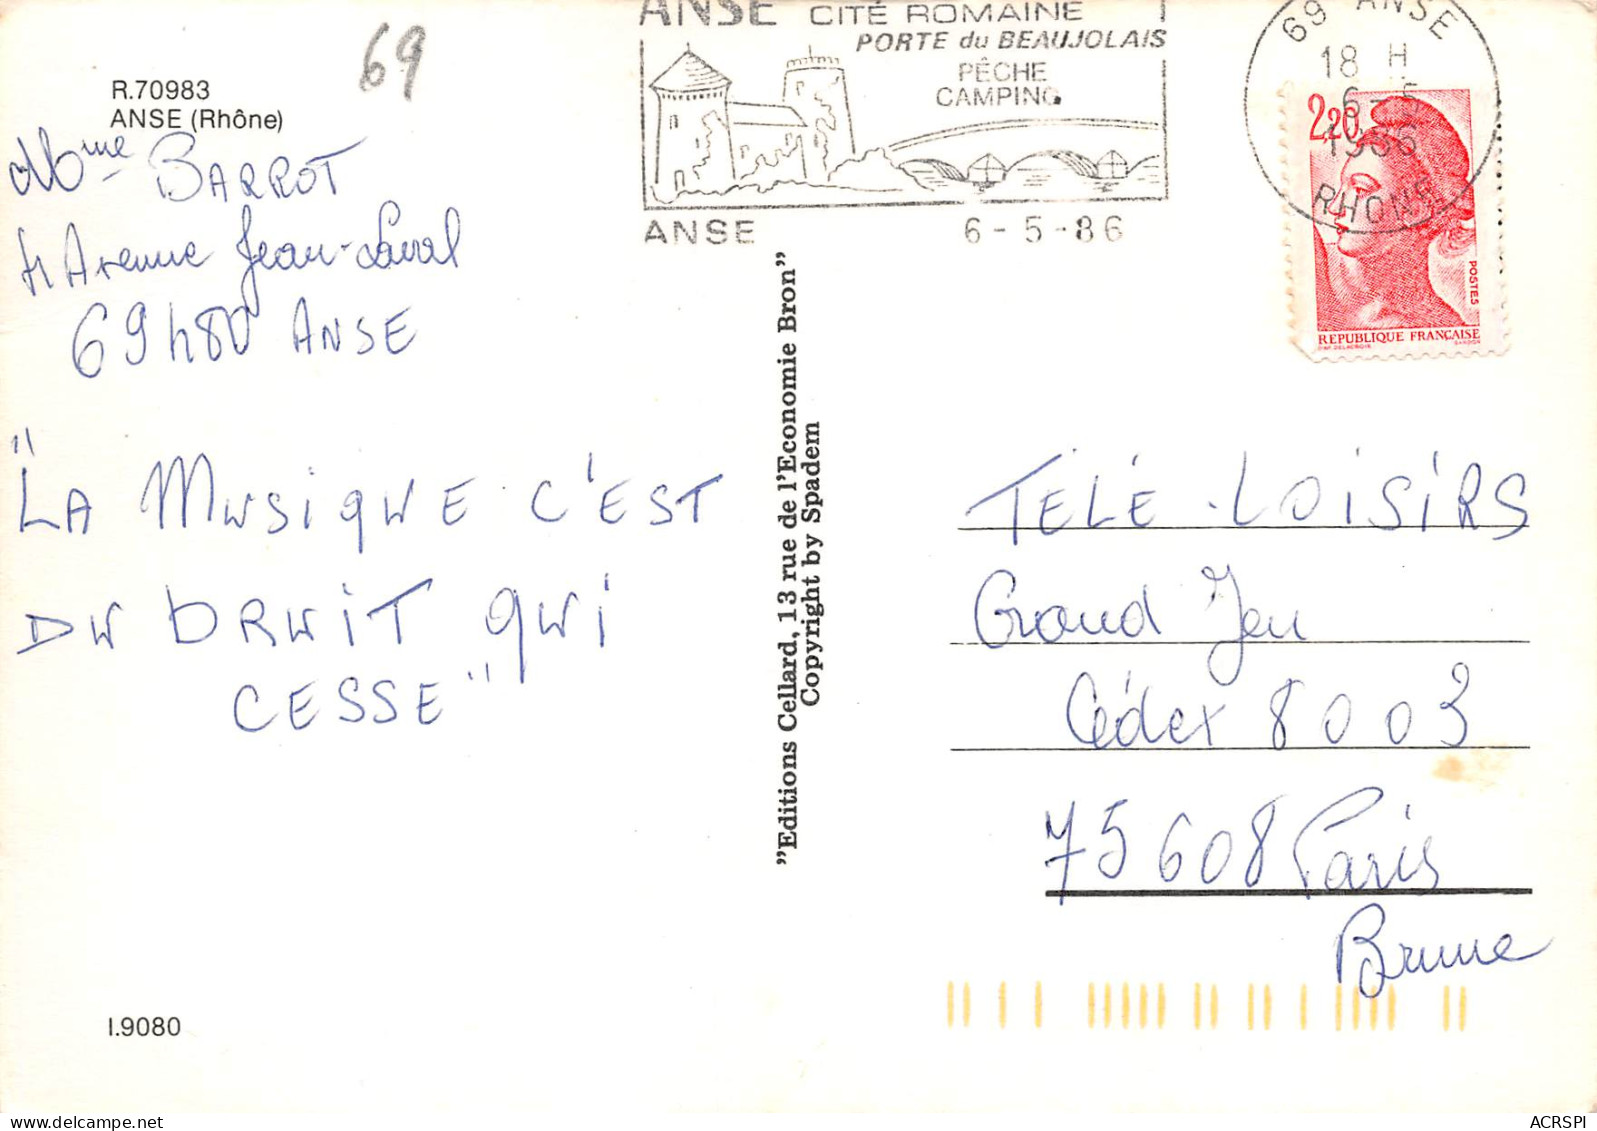 69
R.70983
ANSE (Rhône)
Mme BARROT
4 Avenue Jean-Laval
69480 ANSE
"LA MUSIQUE C'EST
DU BRUIT QUI
CESSE"
I.9080
ANSE CITÉ ROMAINE
PORTE du BEAUJOLAIS
PÊCHE
CAMPING
ANSE 6-5-86
69 ANSE
18 H
6-5
1986
RHONE
2,20
POSTES
REPUBLIQUE FRANÇAISE
D'AP. DELACROIX GANDON
"Editions Cellard, 13 rue de l'Economie Bron"
Copyright by Spadem
TELÉ-LOISIRS
Grand Jeu
Cédex 8003
75608 Paris
Brune
ACRSPI